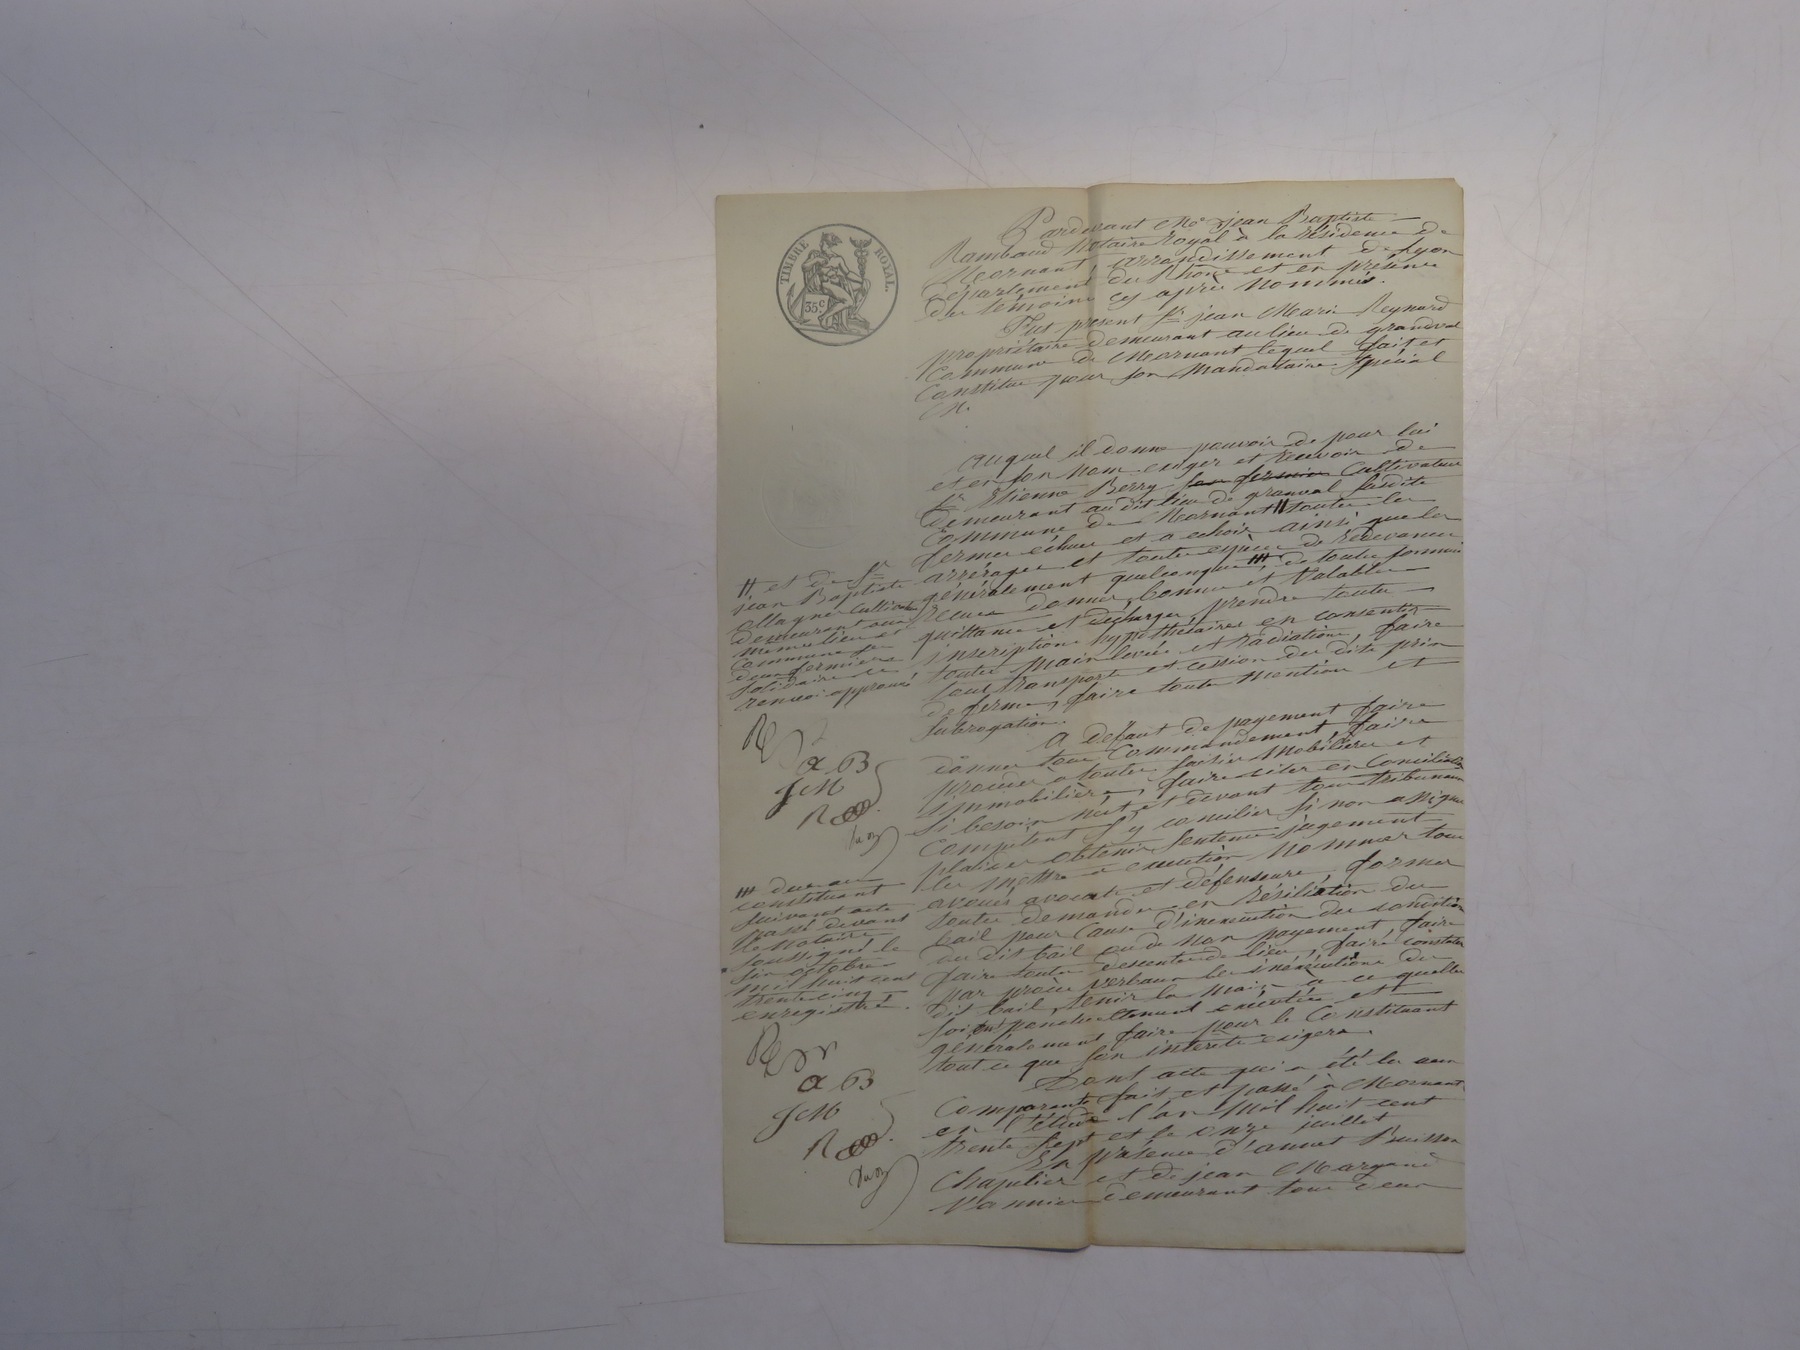 TIMBRE ROYAL.
35.c
Pardevant Me jean Baptiste
Rambaud Notaire Royal à la résidence de
Mornant, arrondissement de Lyon
département du Rhône et en présence
des témoins cy après nommés.
Fut présent Sr jean Marie Reynard
propriétaire demeurant au lieu de grandval
Commune de Mornant lequel fait et
Constitue pour son Mandataire Spécial
M.
auquel il donne pouvoir de pour lui
et en son nom exiger et recevoir de
Sr Etienne Berry son fermier Cultivateur
demeurant au dit lieu de granval susdite
Commune de Mornant # toutes les
fermes échues et a echoir ainsi que les
arrérages et toute espèce de redevances
généralement quelconques ## de toutes sommes
recues donner bonnes et valables
quittances et décharges, prendre toutes
inscriptions hypothécaires en consentir
toutes mainlevées et radiations, faire
tous transports et cession des dits prix
de ferme, faire toute mention et
subrogation.
A défaut de payement faire
donner tous Commandements, faire
proceder a toutes saisies Mobilières et
immobilières, faire citer en Conciliation
si besoin est et devant tous tribunaux
Compétent s'y concilier si non assigner
plaider obtenir sentence jugement
les mettre à exécution Nommer tous
avoués avocats et défenseurs, former
toutes demandes en Résiliation du
bail pour Cause d'inexécution des conditions
du dit bail ou de non payement, faire
faire toutes descentes de lieu, faire constater
par procès verbaux les inexécutions du
dit bail, tenir la Main a ce quelles
soient ponctuellement exécutées et
généralement faire pour le Constituant
tout ce que son intérêt exigera.
Dont acte qui a été lu aux
Comparants fait et passé à Mornant
en l'étude l'an Mil huit cent
trente sept et le onze juillet
En présence d'
Chapelier et de jean
Vannier demeurant tous deux
# et de Sr
jean Baptiste
cultivateur
demeurant aux
mêmes lieu et
Commune ses
deux fermiers
solidaires ce
renvoi approuvé
a B
JcM
## dues au
constituant
suivant acte
passé devant
le notaire
soussigné le
six octobre
mil huit cent
trente cinq
enregistré.
a B
JcM